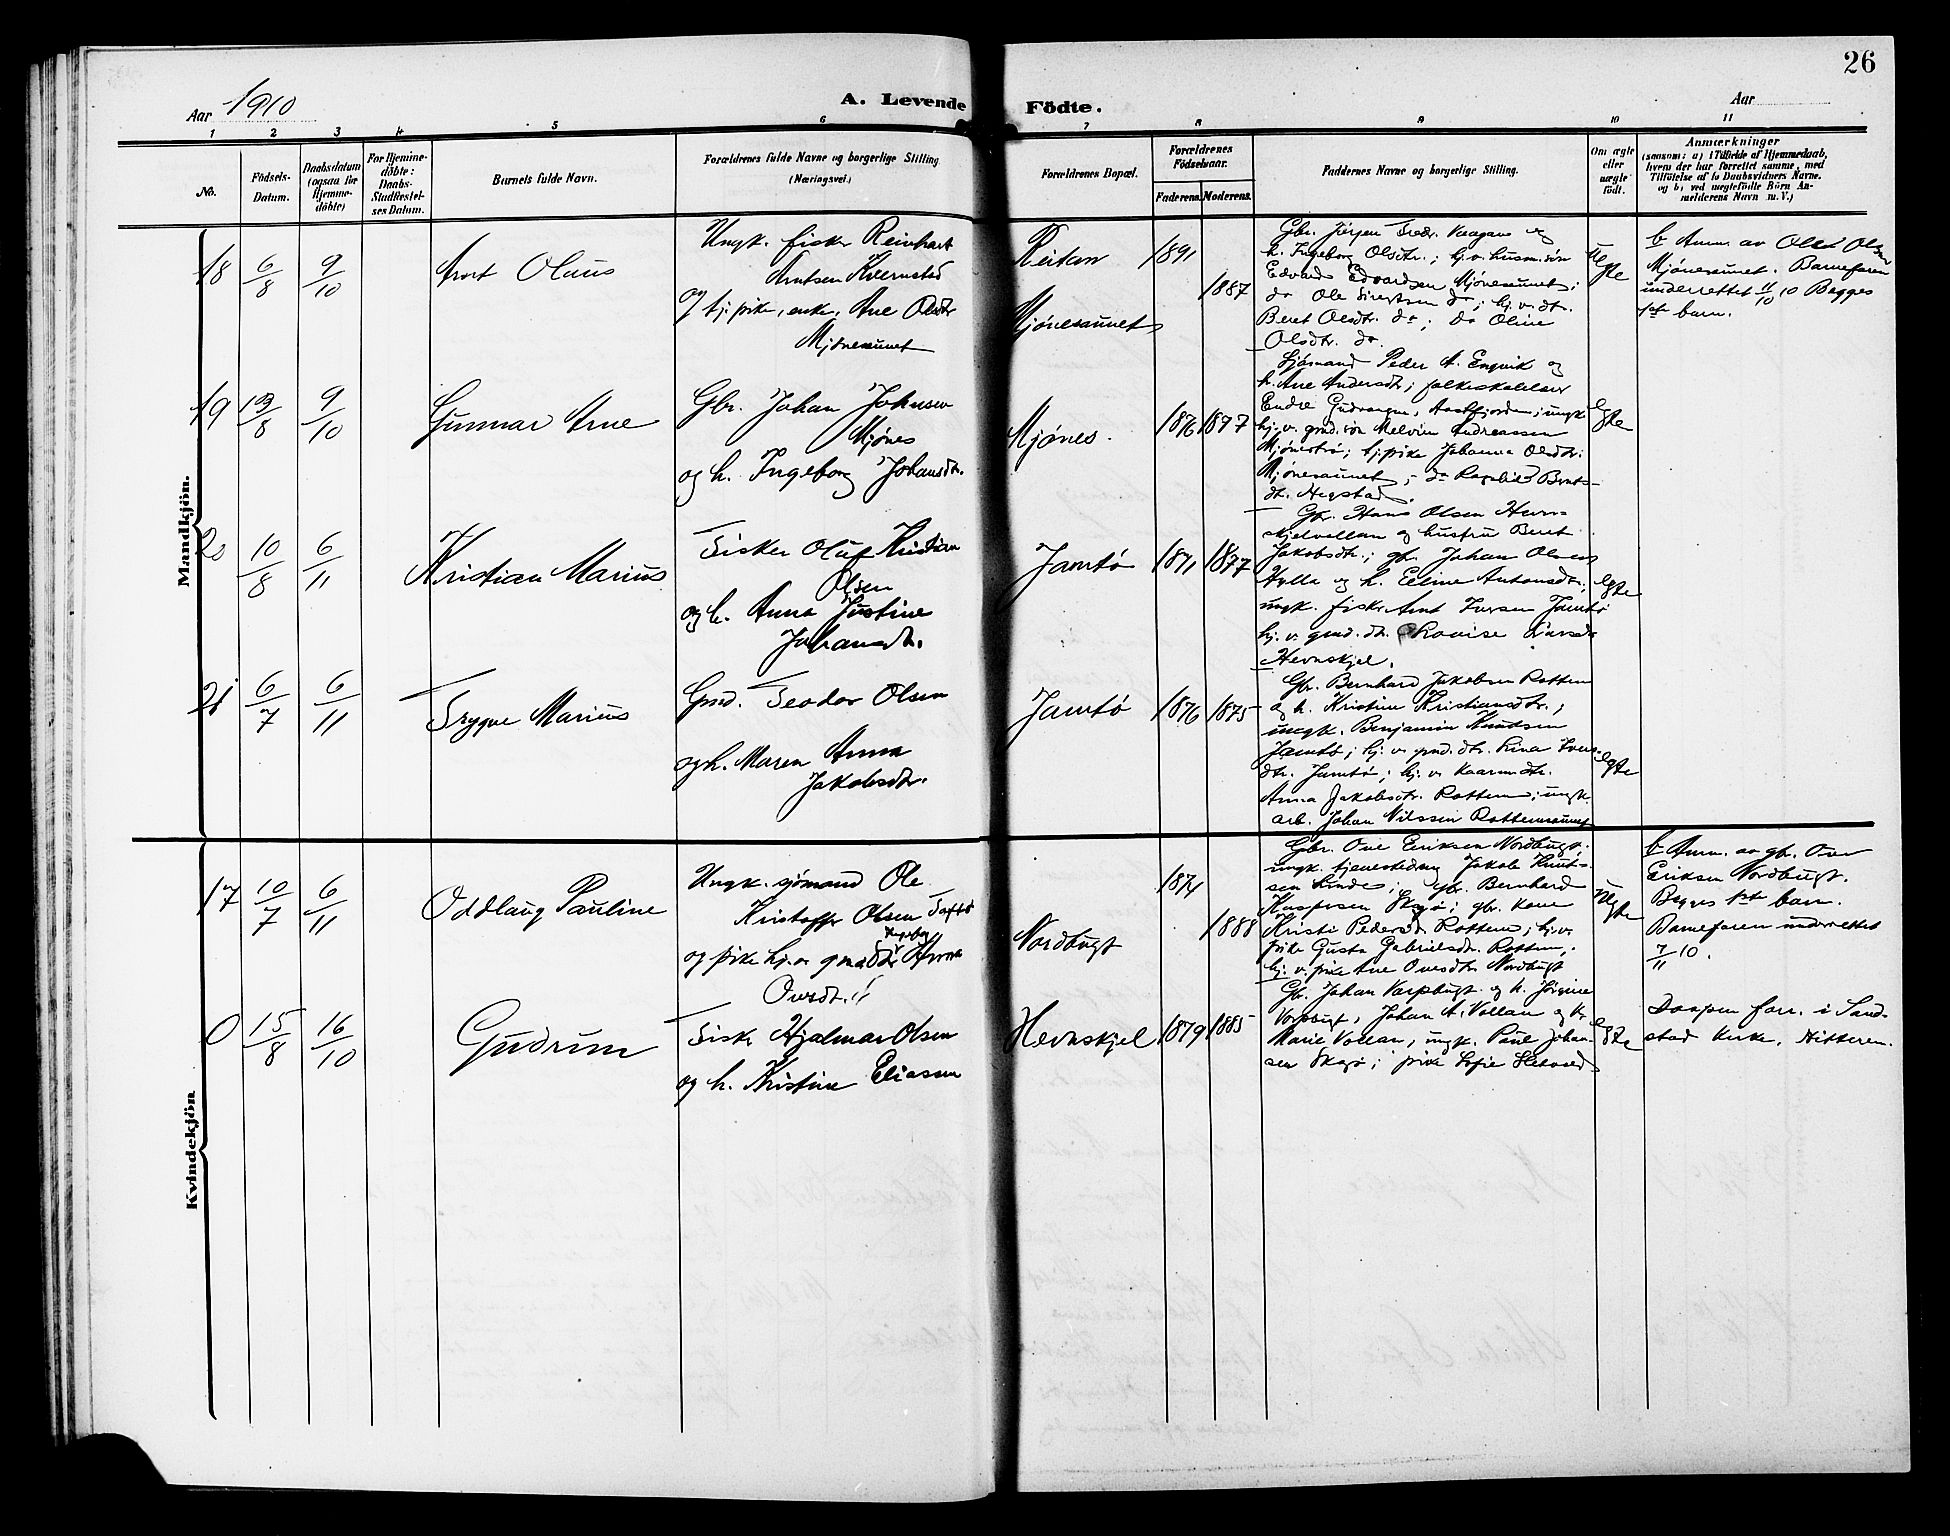 26
Aar 1910
A. Levende Födte.
Aar
1 2 3 4 5 6 7 8 9 10 11
No.
Födsels-
Datum.
Daabsdatum
(ogsaa for
Hjemme-
döbte)
For Hjemme-
döbte:
Daabs-
Stadfestel-
ses Datum.
Barnets fulde Navn.
Forældrenes fulde Navne og borgerlige Stilling.
(Næringsvei.)
Forældrenes Bopæl.
Forældrenes
Födselsaar.
Faderens. Moderens.
Faddernes Navne og borgerlige Stilling.
Om ægte
eller
uægte
födt.
Anmærkninger
(sansom: a) i Tilfælde af Hjemmedaab,
hvem der har forrettet samme, med
Tilföielse af to Daabsvidners Navne.
og b) ved uægtefödte Börn An-
melderens Navn m. V.)
Mandkjön.
18
6/8
9/10
Arnt Olaus
Ungk. fisker Reinhart
Arntsen Kvernstad
og tj. pike, enke, Ane Olsdtr
Mjønesaunet
Reitan
Mjønesaunet
1891
1887
Gbr. Jörgen Fredr. Vaagan og
h. Ingeborg Olsdtr.; hj.v. husm.søn
Edvard Edvardsen Mjønesaunet;
do Ole Sivertsen do; hj. v. dt.
Beret Olsdtr. do; do Oline
Olsdtr. do.
Uegte
b Anm. av Olei Olsen
Mjønesaunet. Barnefaren
underrettet 11/10 10 Begges
1ste barn.
19
13/8
9/10
Gunnar Arne
Gbr. Johan Johnsen
Mjønes
og h. Ingeborg Johansdtr.
Mjønes.
1876 1877
Sjömand Peder A. Engvik og
h. Ane Andersdtr; folkeskolelær
Endre Gudvangen, Aastfjorden; ungk
hj. v. gmd. søn Melvin Andreassen
Mjønestrø; tj. pike Johanna Olsdtr.
Mjønesaunet; do Ragnhild Bernts-
dtr. Hegstad.
egte
20
10/8
6/11
Kristian Marius
Fisker Oluf Kristian
Olsen
og h. Anna Justine
Johansdtr.
Jamtø
1871 1877
Gbr. Hans Olsen Hevn-
skjelvollan og hustru Beret
Jakobsdtr.; gbr. Johan Olsen
Hylla og h. Eline Antonsdtr.
ungk. fisker Arnt Iversen Jamtø
hj. v. gmd. dtr. Lovise Larsdtr
Hevnskjel.
egte
21
6/7
6/11
Trygve Marius
Gmd. Teodor Olsen
og h. Maren Anna
Jakobsdtr.
Jamtø
1876 1875
Gbr. Bernhard Jakobsen Rottem
og h. Kristine Kristiansdtr.;
ungk. Benjamin Knutsen
Jamtø; hj. v. gmd. dtr. Lina Ivers-
dtr. Jamtø; hj. v. kaarm.dtr.
Anna Jakobsdtr. Rottem; ungk.
arb. Johan Nilssen Rottemsaunet
egte
Kvindekjön
17
10/7
6/11
Oddlaug Pauline
Ungk. sjömand Ole
Kristoffer Olsen Taftø
Ingeborg
og pike hj. v. gmd dtr Anna
Ovesdtr.
Nordbugt
1871
1888
Gbr. Ove Eriksen Nordbugt;
ungk. tjenestedreng Jakob Knut-
sen Lunde; gbr. Bernhard
Kaspersen Skogø; gbr. kone
Kristi Pedersdtr Rottem; hj. v.
pike Gusta Gabrielsdtr. Rottem;
hj. v. pike Ane Ovesdtr. Nordbugt
Uegte
b Anm. av gbr. Ove
Eriksen Nordbugt.
Begges 1ste barn.
Barnefaren underrettet
7/11 10.
0
15/8
16/10
Gudrun
Fisker Hjalmar Olsen
og h. Kristine Eliasen
Hevnskjel
1879 1885
Gbr. Johan Vaspbugt. og h. Jörgine
Vaspbugt, Johan A. Vollan og h.
Marie Vollan, ungk. Paul Johan-
sen Skogø; pike Sofie
egte
Daapen forr. i Sand-
stad kirke, Hitteren.